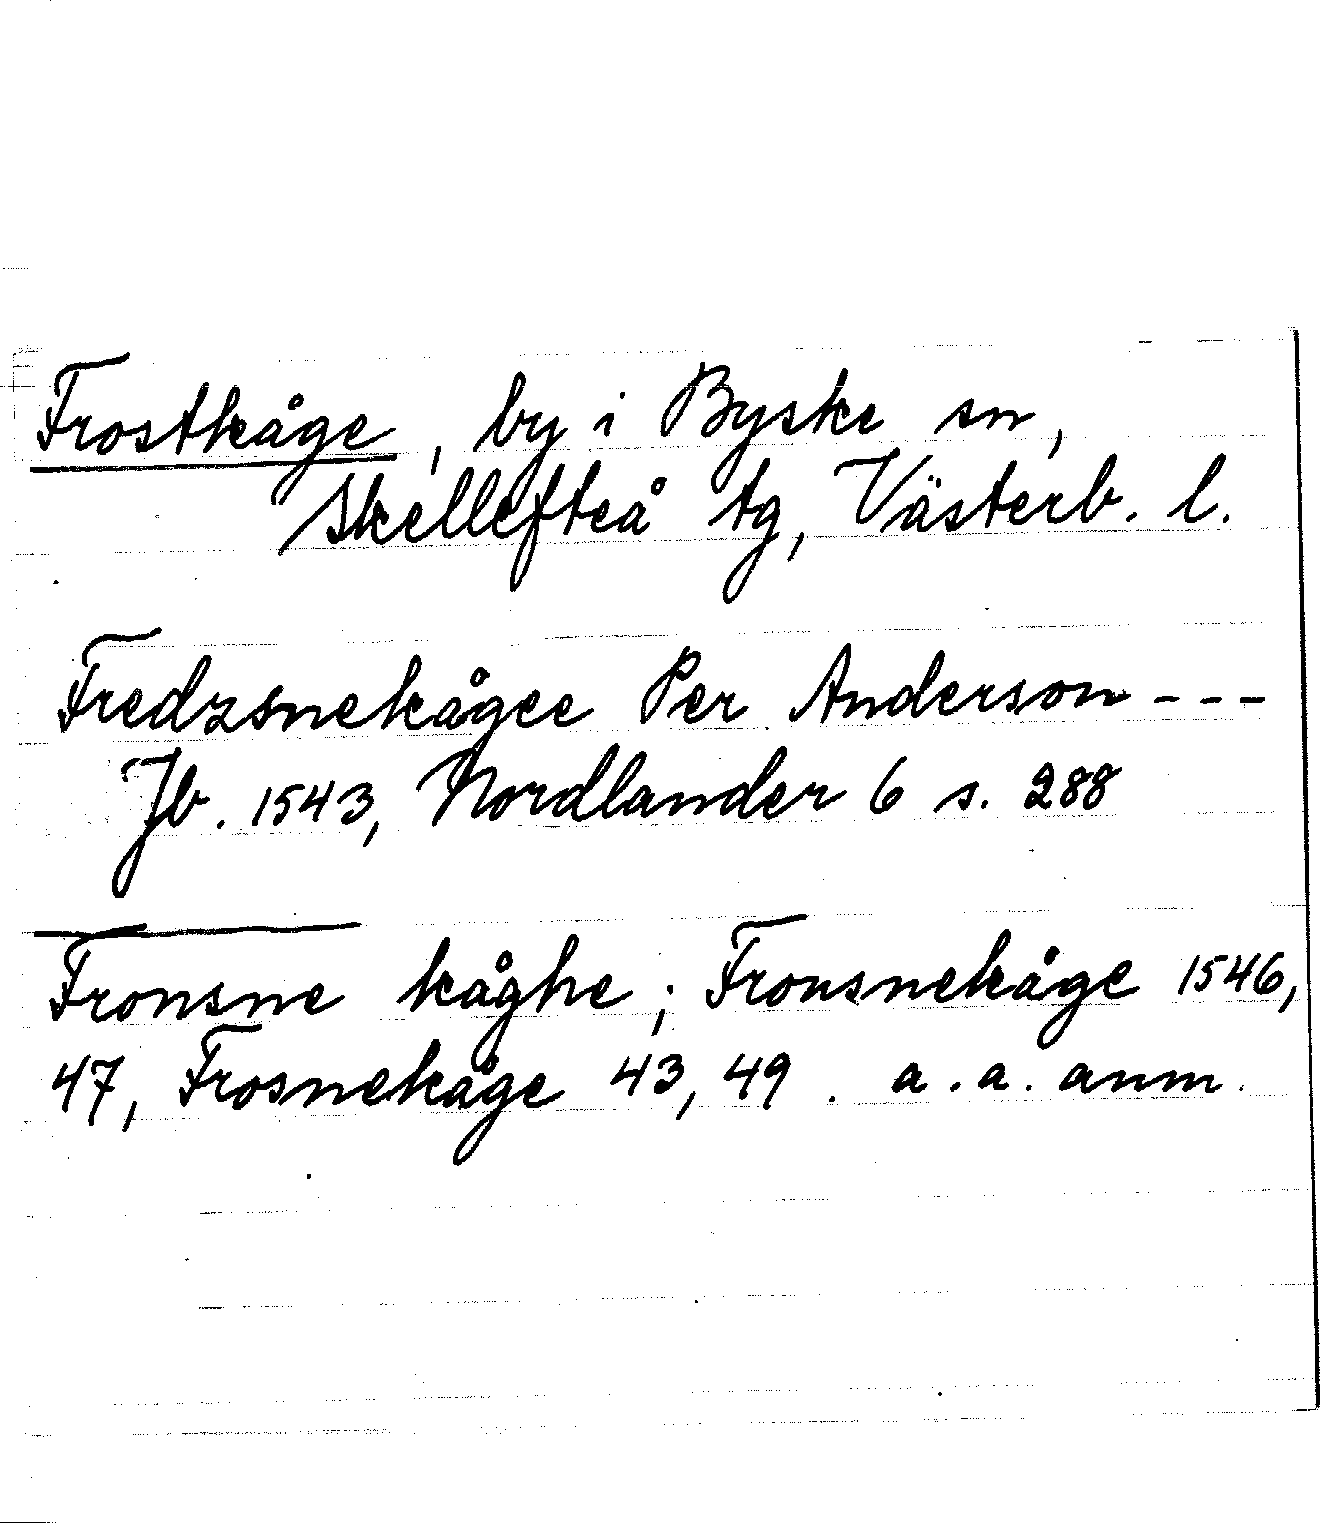 Frostkåge, by i Byske sn,
Skellefteå tg, Västerb. l.
Fredzsnekågee Per Anderson - - -
Jb. 1543, Nordlander 6 s. 288
Fronsne kåghe; Fronsnekåge 1546,
47, Frosnekåge 43, 49. a. a. anm.